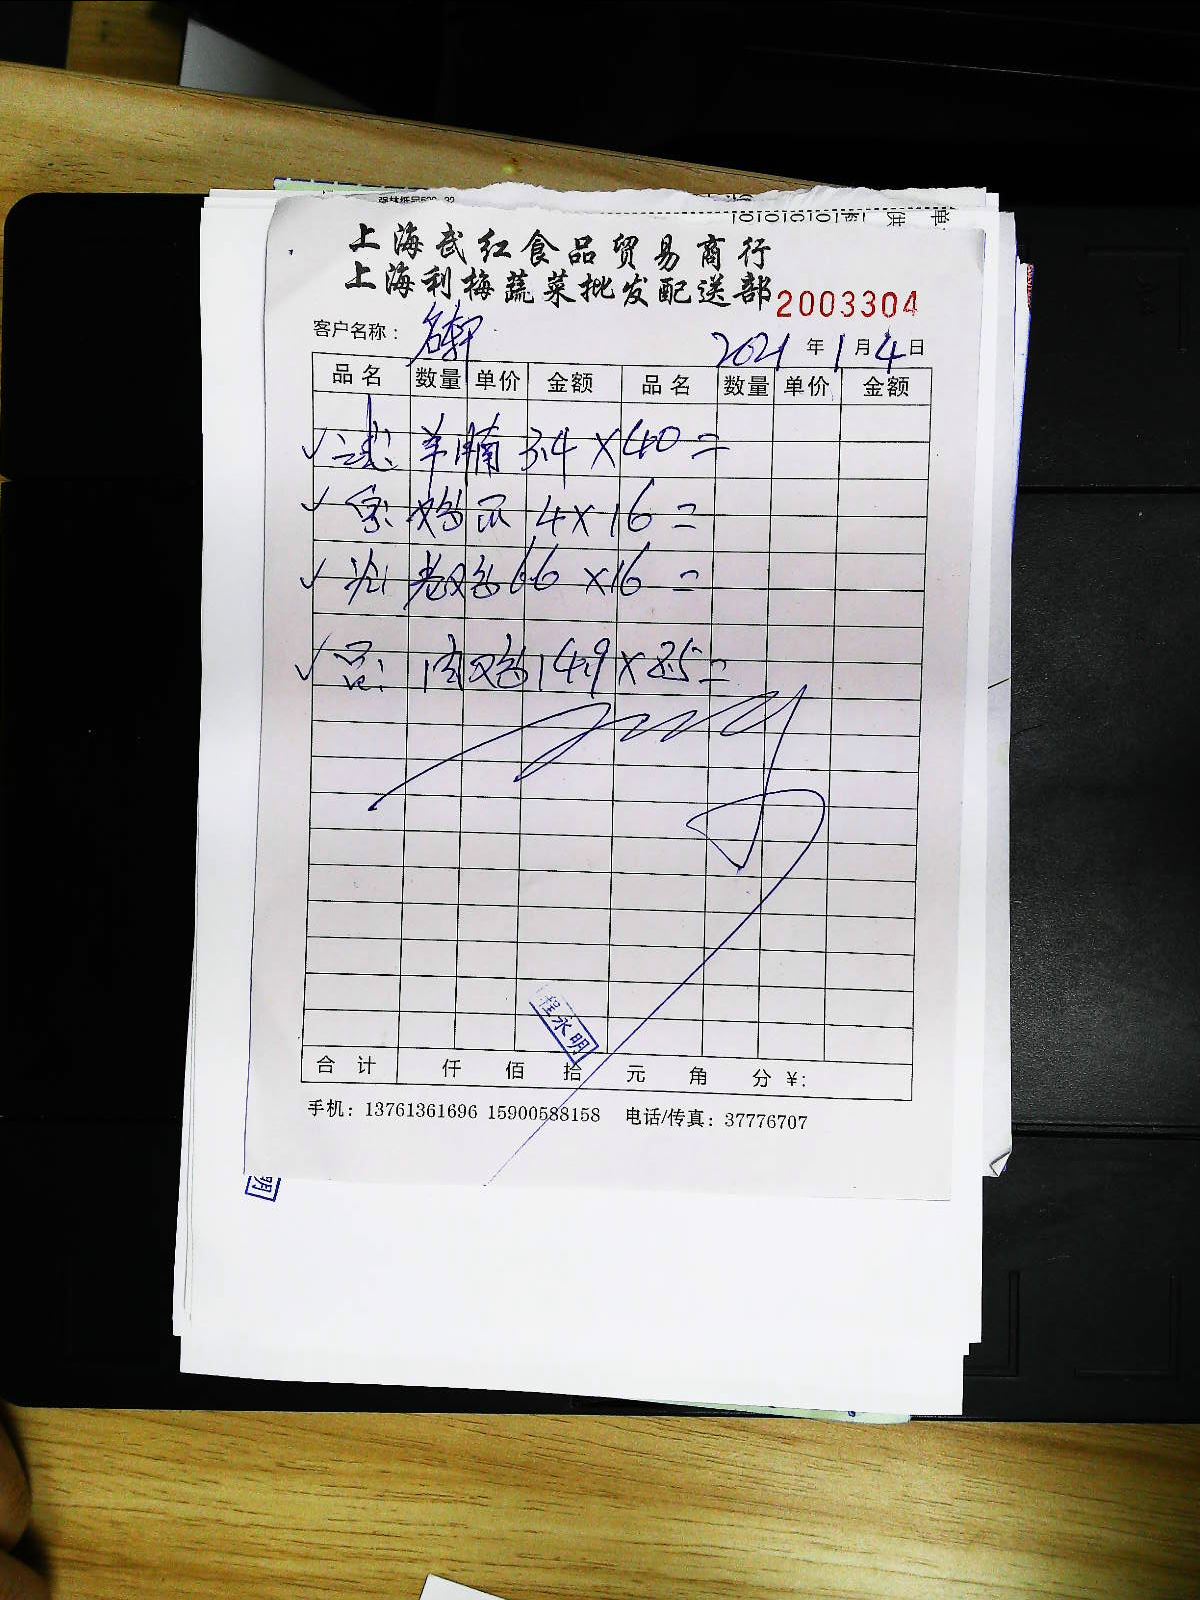 上海武红食品贸易商行
上海利梅蔬菜批发配送部 2003304
客户名称： 名轩 2021 年 1 月 4 日
品名 数量 单价 金额 品名 数量 单价 金额
羊腩 3.4×40=
鸡爪 4×16=
老鸡 6.6×16=
肉鸡 14.9×8.5=
程永明
合计 仟 佰 拾 元 角 分 ¥:
手机：13761361696 15900588158 电话/传真：37776707
明